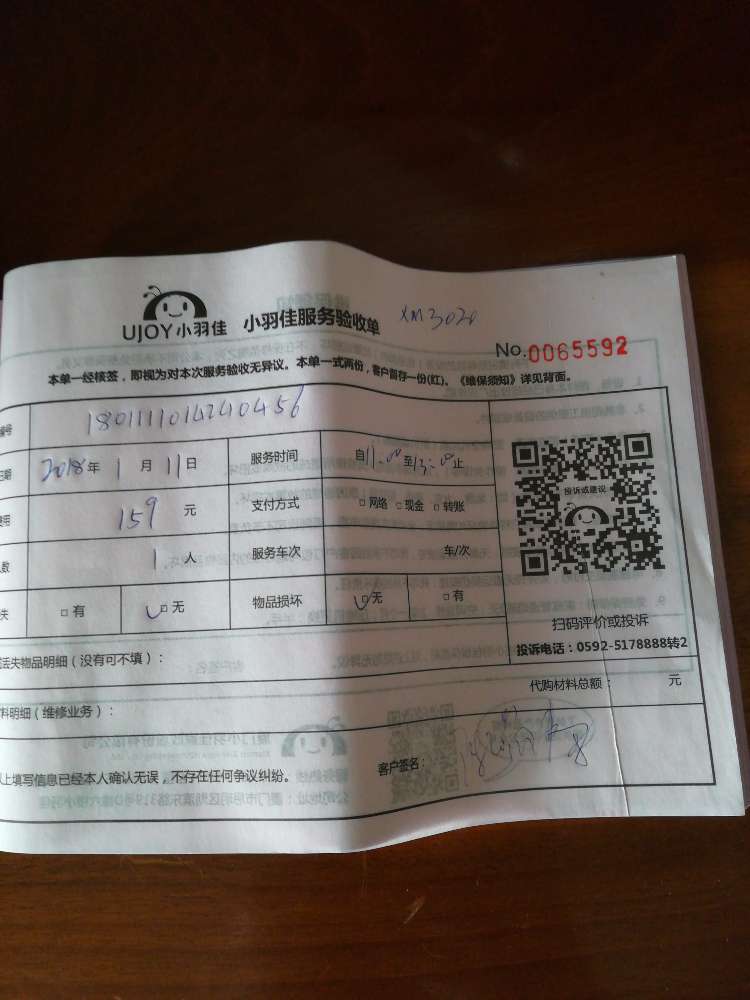 UJOY小羽佳 小羽佳服务验收单 XM3020
No.0065592
本单一经核签，即视为对本次服务验收无异议。本单一式两份，客户留存一份(红)。《维保须知》详见背面。
编号 1801111014240456
日期 2018年1月11日 服务时间 自11:00至13:00止
费用 159元 支付方式 □网络 □现金 □转账
人数 1人 服务车次 车/次
失 □有 □无 物品损坏 □无 □有
投诉或建议
扫码评价或投诉
投诉电话：0592-5178888转2
丢失物品明细（没有可不填）：
代购材料总额： 元
料明细（维修业务）：
以上填写信息已经本人确认无误，不存在任何争议纠纷。 客户签名：